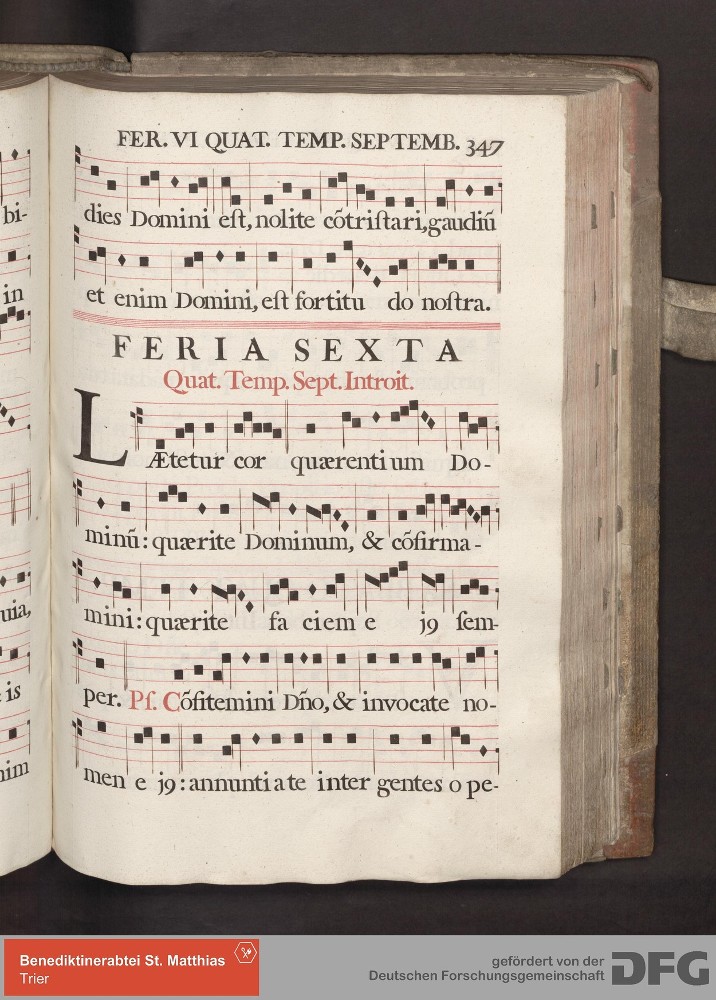 FER. VI QUAT. TEMP. SEPTEMB. 347
dies Domini eſt, nolite cõtriſtari, gaudiũ
et enim Domini, eſt fortitu do noſtra.
FERIA SEXTA
Quat. Temp. Sept. Introit.
LÆtetur cor quærentium Do-
minũ: quærite Dominum, & cõfirma-
mini: quærite fa ciem e jꝯ ſem-
per. Pſ. Cõfitemini Dño, & invocate no-
men e jꝯ: annuntiate inter gentes o pe-
bi-
in
uia,
is
nim
Benediktinerabtei St. Matthias
Trier
gefördert von der
Deutschen Forschungsgemeinschaft
DFG